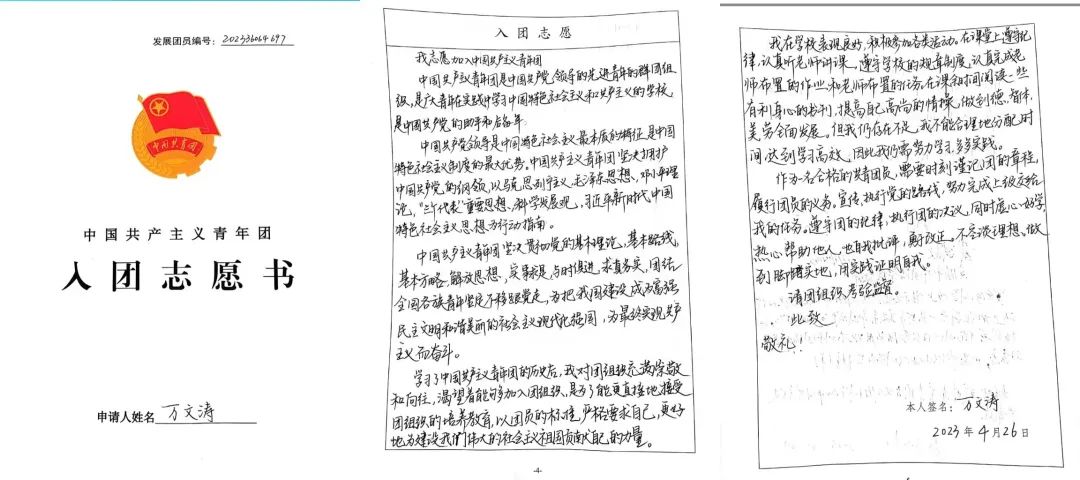 发展团员编号：202336064697
中国共青团
中国共产主义青年团
入团志愿书
申请人姓名 万文涛
入团志愿
我志愿加入中国共产主义青年团
中国共产主义青年团是中国共产党领导的先进青年的群团组
织，是广大青年在实践中学习中国特色社会主义和共产主义的学校，
是中国共产党的助手和后备军。
中国共产党领导是中国特色社会主义最本质的特征，是中国
特色社会主义制度的最大优势。中国共产主义青年团坚决拥护
中国共产党的纲领，以马克思列宁主义，毛泽东思想，邓小平理
论，“三个代表”重要思想，科学发展观，习近平新时代中国
特色社会主义思想为行动指南。
中国共产主义青年团坚决贯彻党的基本理论，基本路线，
基本方略，解放思想，实事求是，与时俱进，求真务实，团结
全国各族青年坚定不移跟党走，为把我国建设成为富强
民主文明和谐美丽的社会主义现代化强国，为最终实现共产
主义而奋斗。
学习了中国共产主义青年团的历史后，我对团组织充满崇敬
和向往，渴望着能够加入团组织，是为了能更直接地接受
团组织的培养教育，以团员的标准，严格要求自己，更好
地为建设我们伟大的社会主义祖国贡献自己的力量。
4
我在学校表现良好，积极参加各类活动。在课堂上遵守纪
律，认真听老师讲课，遵守学校的规章制度，认真完成老
师布置的作业和老师布置的任务，在课余时间阅读一些
有利身心的书刊，提高自己高尚的情操，做到德、智、体、
美、劳全面发展。但我仍存在不足，我不能合理地分配时
间，达到学习高效，因此我仍需努力学习，多多实践。
作为一名合格的共青团员，需要时刻谨记团的章程，
履行团员的义务。宣传、执行党的路线，努力完成上级交给
我的任务。遵守团的纪律，执行团的决议，同时虚心好学，
热心帮助他人，也自我批评，勇于改正。不空谈理想。做
到脚踏实地，用实践证明自我。
请团组织考验监督。
此致
敬礼！
本人签名：万文涛
2023年4月26日